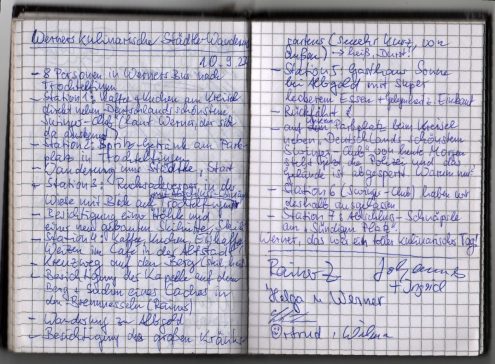 Werners kulinarische Städtle-Wanderung
10.9.22
- 8 Personen in Werners Bus nach
Trochtelfingen
- Station 1: Kaffee + Kuchen am Kreisel
direkt neben Deutschlands schönstem
Swinger-Club (laut Werner, der sich
da auskennt)
- Station 2: Spritz-Getränk am Park-
platz in Trochtelfingen
- Wanderung ums Städtle, Start
- Station 3: Rucksackvesper in der
Wiese mit Blick auf Trochtelfingen
- Besichtigung einer Höhle und
einer neu gebauten
- Station 4: Kaffee, Kuchen, Eiskaffee
Weizen im Café in der Altstadt
- Kreuzweg auf den Berg
- Besichtigung der Kapelle auf dem
Berg + Suchen eines Caches in
den Brennnesseln (Rainer)
- Wanderung zu Albgold
- Besichtigung des großen Kräuter-
gartens (sehr kurz, von
außen) → heiß, Durst!
- Station 5: Gasthaus Sonne
bei Albgold mit super
leckerem Essen + Einkauf
- Rückfahrt
- auf dem Parkplatz beim Kreisel
neben Deutschlands schönstem
Swinger-Club
steht jetzt die Polizei und das
Gelände ist abgesperrt. Warum nur?
- Station 6 (Swinger-Club) haben wir
deshalb ausgelassen
- Station 7: Abschluss-Schnäpsle
am "
Werner, das war ein toller kulinarischer Tag!
Rainer Johannes
+ Ingrid
Helga u Werner
Ortrud, Wilma